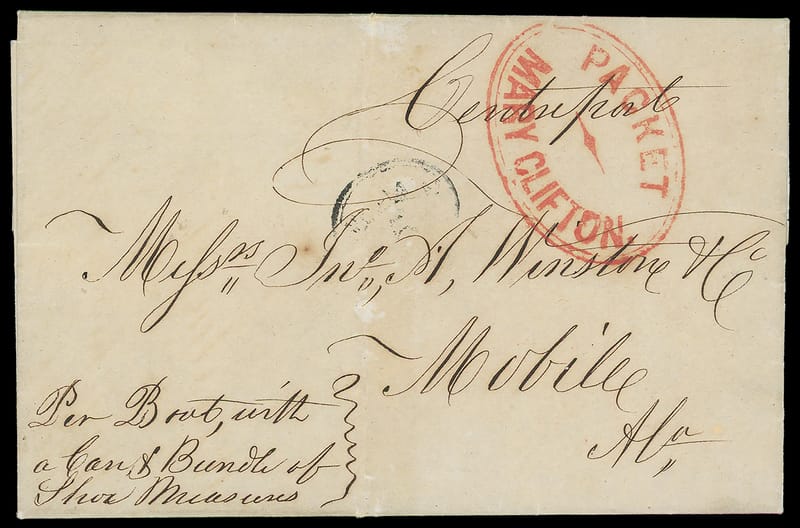 Centreport
PACKET
MARY CLIFTON
Messrs Jno, A, Winston & Co
Mobile
Ala
Per Boat, with
a Can, & Bundle of
Shoe Measures